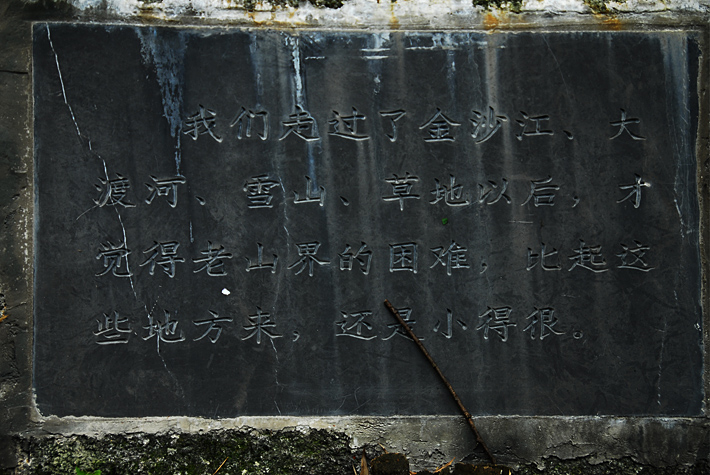 我们走过了金沙江、大
渡河、雪山、草地以后，才
觉得老山界的困难，比起这
些地方来，还是小得很。